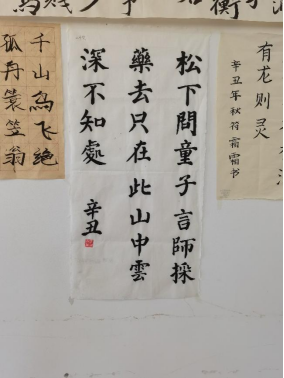 松下問童子言師採
藥去只在此山中雲
深不知處
辛丑
有花则灵
辛丑年秋符霜霜书
千山鸟飞绝
孤舟蓑笠翁